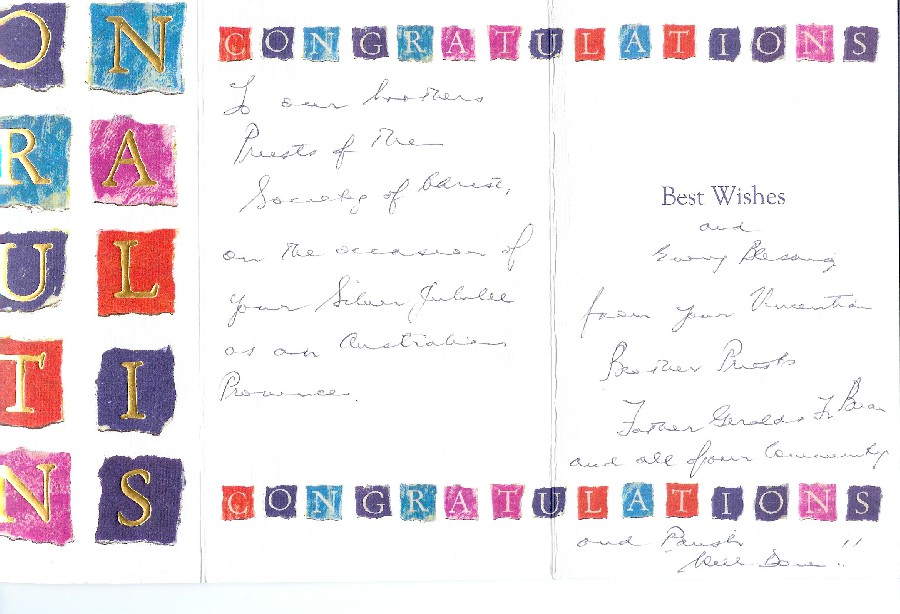 O N
R A
U L
T I
N S
CONGRATULATIONS
To our brothers
Priests of the
Society of Christ,
on the occasion of
your Silver Jubilee
as an Australian
Province.
Best Wishes
and
Every Blessing
from your Vincentian
Brother Priests
Father Gerald & Fr Brian
and all of our Community
CONGRATULATIONS
and Parish
Well Done!!